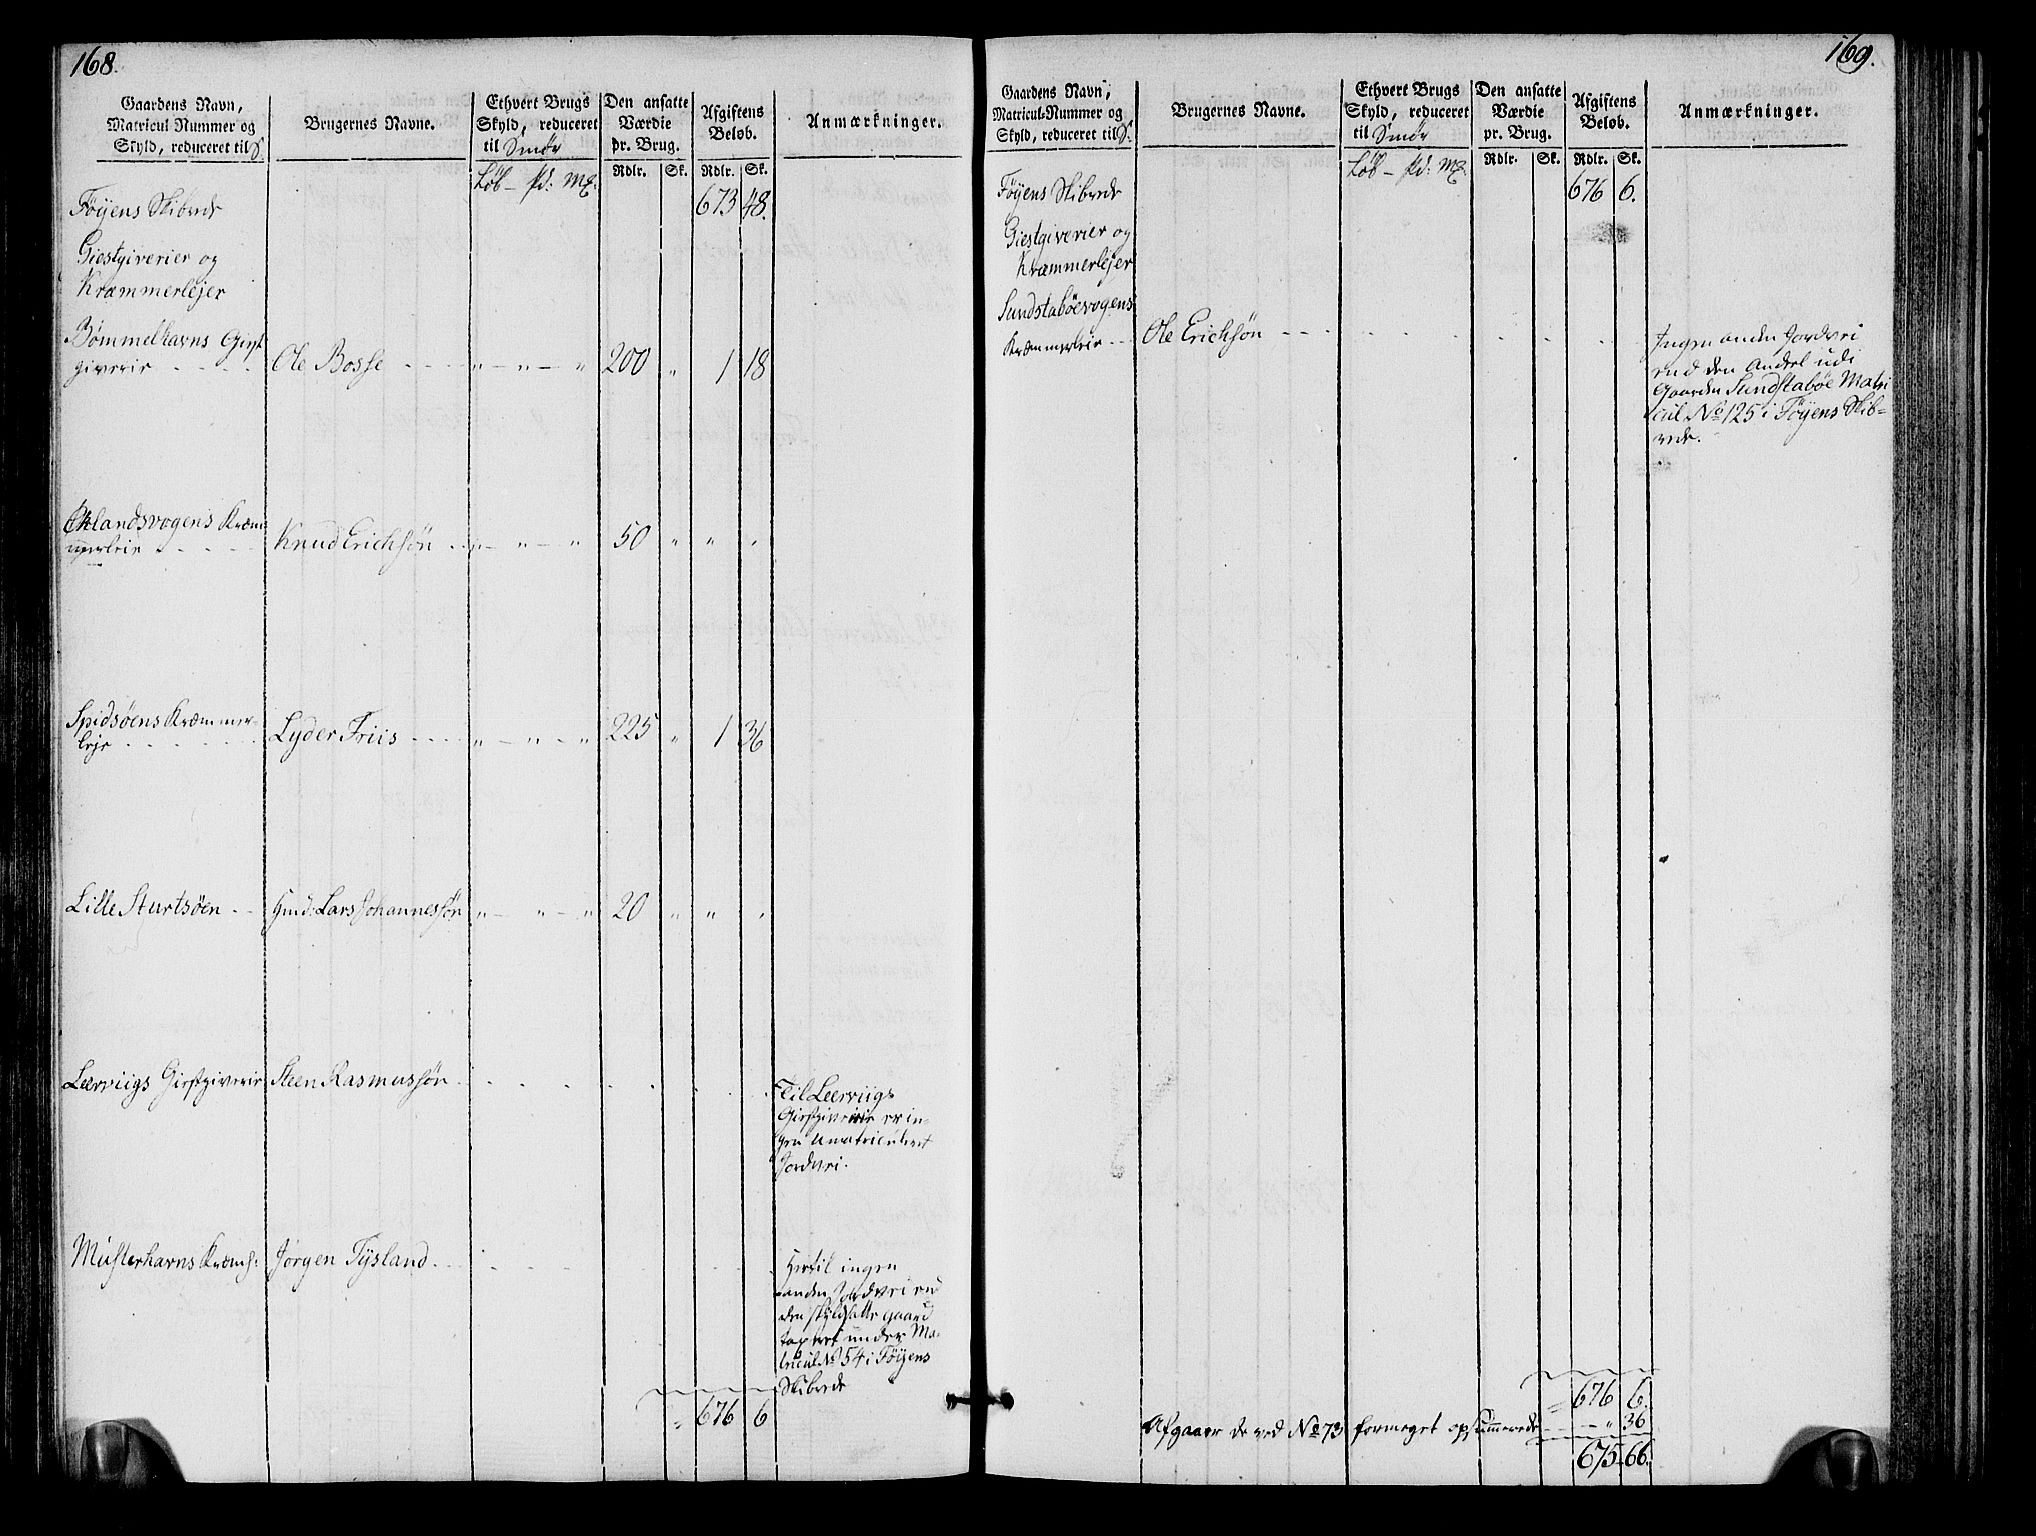 168.
Gaardens Navn,
Matricul-Nummer og
Skyld, reduceret til S.
Brugernes Navne.
Ethvert Brugs
Skyld, reduceret
til Smør
Løb – Pd: Mk.
Den ansatte
Værdie
pr. Brug.
Rdlr. Sk.
Afgiftens
Beløb.
Rdlr. Sk.
Anmærkninger.
Føyens Skibrede 673 48.
Giestgiverier og
Kræmmerlejer
Bømmelhavns Giest
giverie - - - - Ole Bosse - - - - „ – „ – „ 200 „ 1 18
Eklandsvogens Kræm
merleie - - - - Knud Erichsøn - - „ – „ – „ 50 „ „ „
Spidsøens Kræmmer-
leje - - - - Lyder Friis - - - - „ – „ – „ 225 „ 1 36
Lille Sturtsøen - - Hmd: Lars Johannessøn „ – „ – „ 20 „ „ „
Leerviigs Giestgiverie Steen Rasmussøn - - - -
Til Leerviigs
Giestgiverie er in-
gen umatriculeret
Jordvei.
Musterhavns Kræml: Jørgen Tysland - - - -
Hertil ingen
anden Jordvei end
den skyldsatte gaard
taxeret under Ma-
tricul No 54 i Føyens
Skibrede
„ 676 6
169.
Gaardens Navn,
Matricul-Nummer og
Skyld, reduceret til S.
Brugernes Navne.
Ethvert Brugs
Skyld, reduceret
til Smør
Løb – Pd: Mk.
Den ansatte
Værdie
pr. Brug.
Rdlr. Sk.
Afgiftens
Beløb.
Rdlr. Sk.
Anmærkninger.
Føyens Skibrede 676 6.
Giestgiverier og
Kræmmerlejer
Sundstabøevogens
Kræmmerleie - - - Ole Erichsøn - - - -
Ingen anden Jordvei
end den Andel udi
Gaarden Sundstabøe Matri
cul No 125 i Føyens Skib-
rede.
„ 676 6.
Afgaaer de ved No 73 formeget opsummerede - - „ 36
675 – 66.